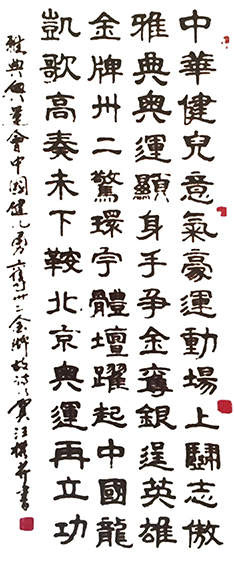 中華健兒意氣豪運動場上鬪志傲
雅典奧運顯身手争金奪銀逞英雄
金牌卅二驚環宇體壇躍起中國龍
凱歌高奏未下鞍北京奧運再立功
雅典奧運會中國健兒勇奪卅二金牌故詩以賀汪書